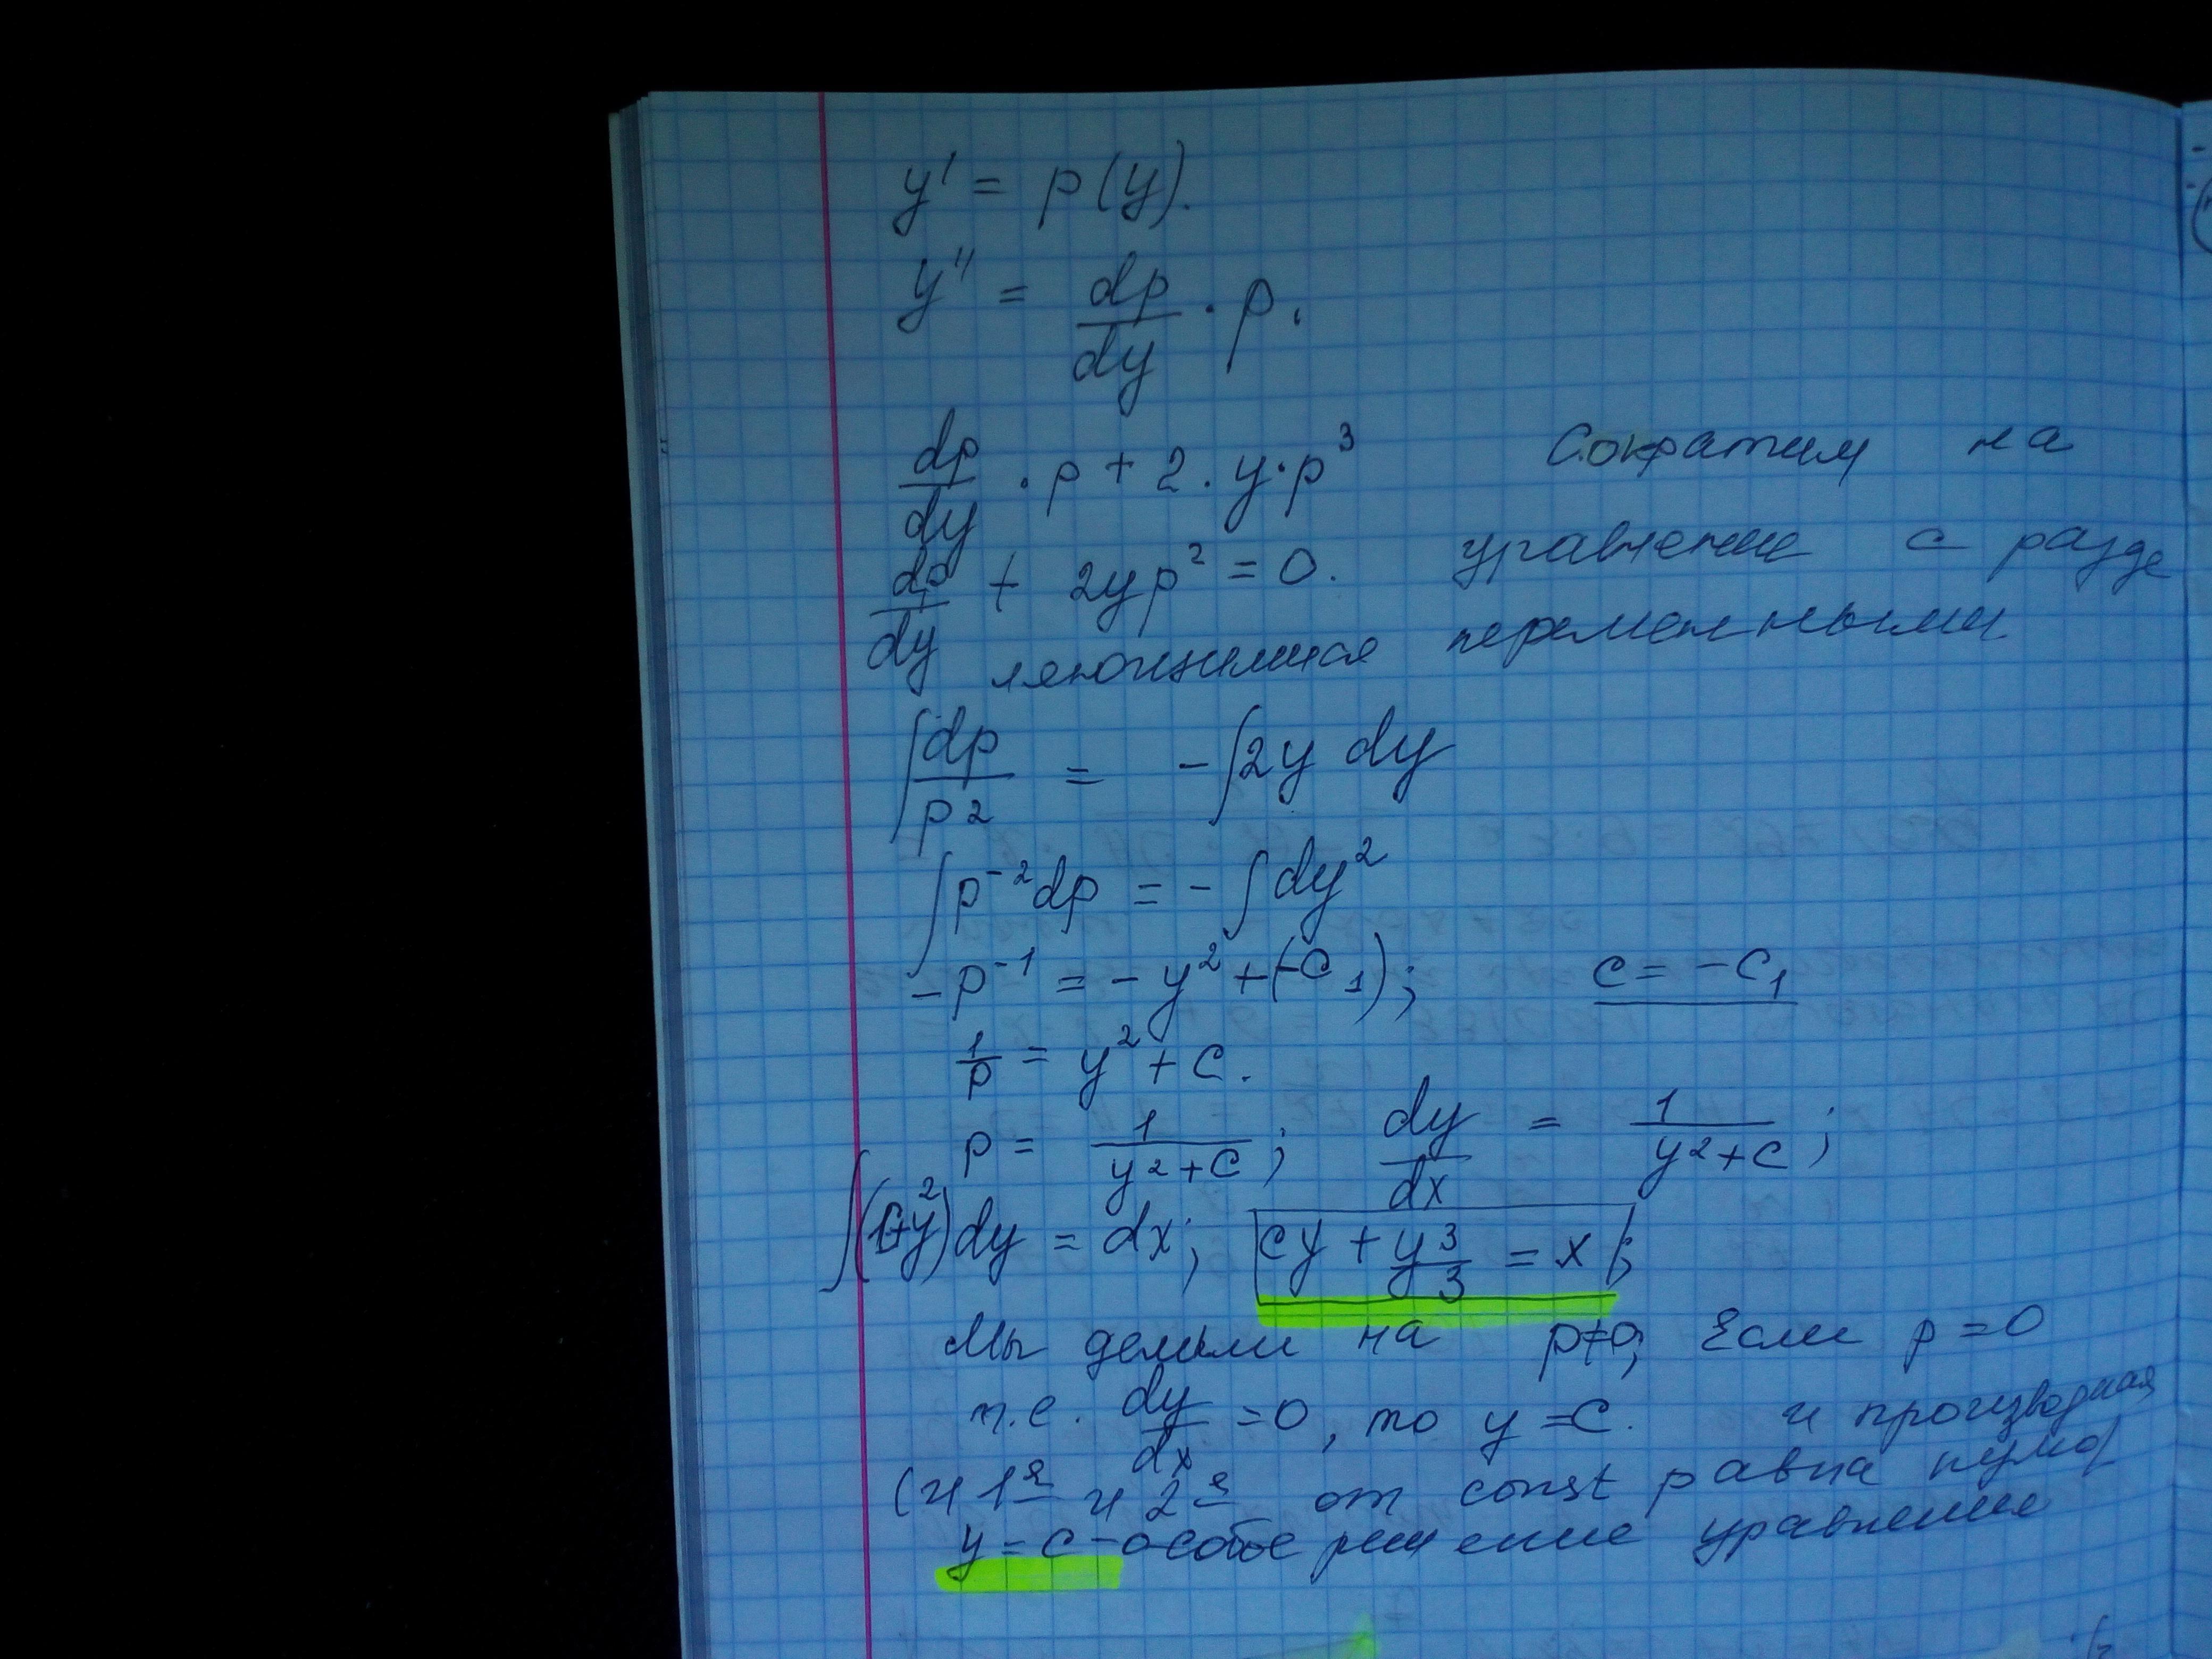 y' = p(y).
y'' = dp/dy · p.
dp/dy · p + 2 · y · p³ Сократим на
dp/dy + 2yp² = 0. уравнение с разде
ляющимися переменными.
∫ dp/p² = -∫2y dy
∫ p⁻² dp = -∫ dy²
-p⁻¹ = -y² + (-C₁); c = -C₁
1/p = y² + C.
p = 1/(y²+C); dy/dx = 1/(y²+C);
∫(C+y²)dy = dx; cy + y³/3 = x;
Мы делили на p≠0; Если p = 0
т.е. dy/dx = 0, то y = C. и производная
(и 1я и 2я от const равна нулю)
y = C - особое решение уравнения